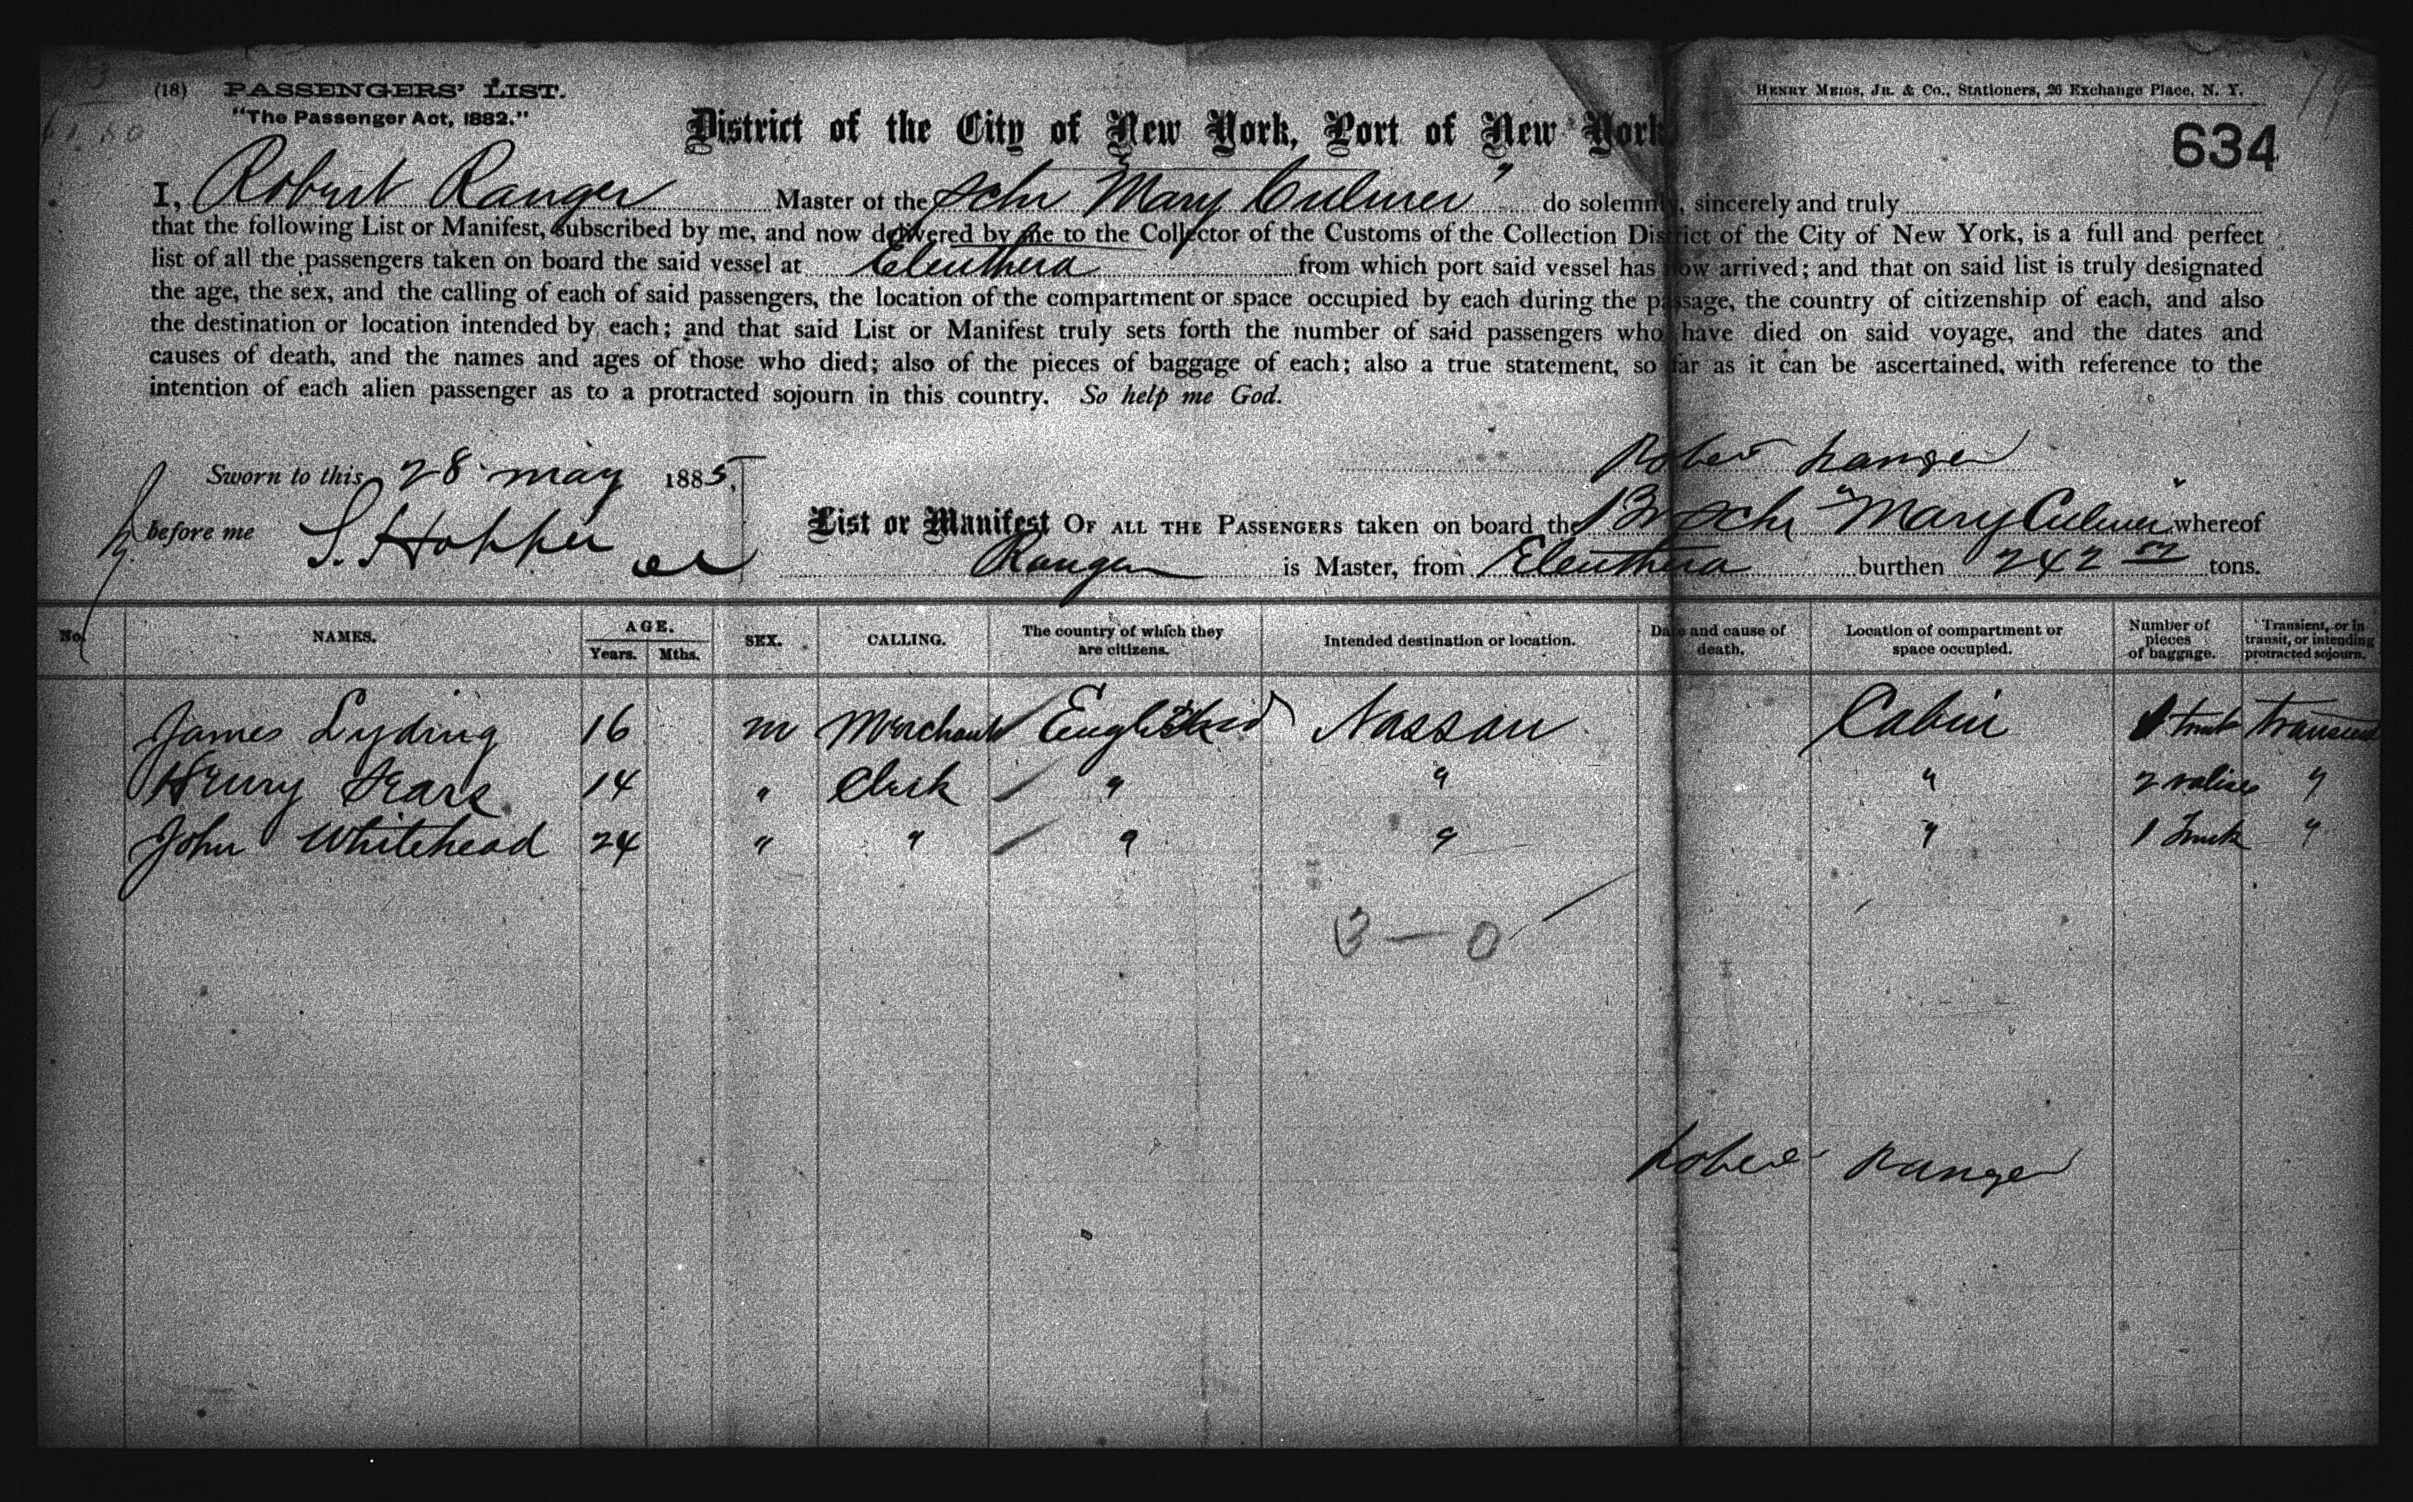 (18) PASSENGERS' LIST.
"The Passenger Act, 1882."
HENRY MEIGS, JR. & CO., Stationers, 26 Exchange Place, N. Y.
District of the City of New York, Port of New York
634
I, Robert Ranger Master of the Schr "Mary Culmer" do solemnly, sincerely and truly
that the following List or Manifest, subscribed by me, and now delivered by me to the Collector of the Customs of the Collection District of the City of New York, is a full and perfect
list of all the passengers taken on board the said vessel at Eleuthera from which port said vessel has now arrived; and that on said list is truly designated
the age, the sex, and the calling of each of said passengers, the location of the compartment or space occupied by each during the passage, the country of citizenship of each, and also
the destination or location intended by each; and that said List or Manifest truly sets forth the number of said passengers who have died on said voyage, and the dates and
causes of death, and the names and ages of those who died; also of the pieces of baggage of each; also a true statement, so far as it can be ascertained, with reference to the
intention of each alien passenger as to a protracted sojourn in this country. So help me God.
Robert Ranger
Sworn to this 28 may 1885,
before me S. Hopper
List or Manifest OF ALL THE PASSENGERS taken on board the Br Schr "Mary Culmer" whereof
Ranger is Master, from Eleuthera burthen 242 tons.
No. NAMES. AGE. Years. Mths. SEX. CALLING. The country of which they are citizens. Intended destination or location. Date and cause of death. Location of compartment or space occupied. Number of pieces of baggage. Transient, or in transit, or intending protracted sojourn.
James Lyding 16 m Merchant England Nassau Cabin 1 trunk transient
Henry Sears 14 " Clerk " " " 2 valises "
John Whitehead 24 " " " " " 1 Trunk "
3 — 0
Robert Ranger